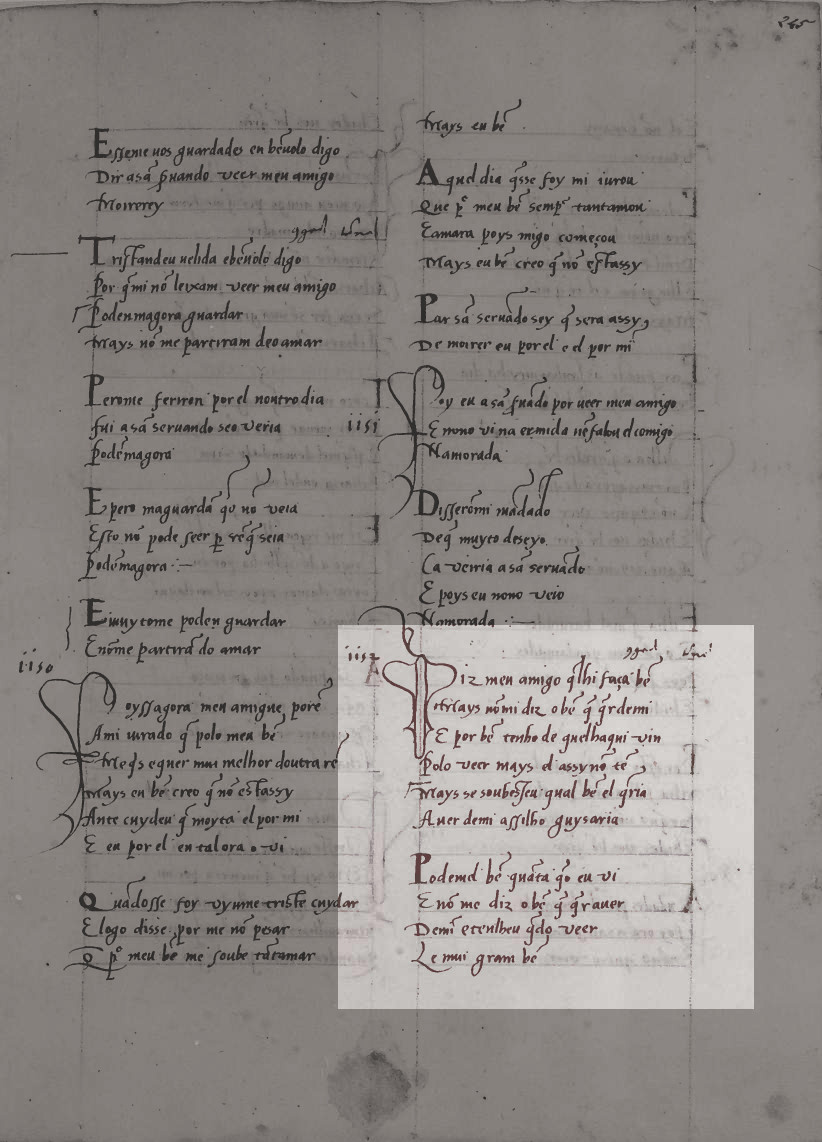 245
Esseme uos guardades en bēuolo digo
Dir asā s̄uando veer meu amigo
Moirerey
Tristandeu uelida ebēuolo digo
Por q̄mi nō leixam veer meu amigo
Podenmagora guardar
Mays nō me partiram deo amar
Perome feriron por el noutro dia
fui a sā seruando seo veria
Podēmagora
Epero maguardā qō nō veia
Esto nō pode seer p̲ req̄ seia
Podēmagora
E muytome poden guardar
Enōme partirā do amar
1150
Foyssagora meu amigue porē
Ami iurado q̄ polo meu bē
Me q̄s e quer mui melhor doutra rē
Mays eu bē creo q̄ nō estassy
Ante cuydeu q̄ moyra el por mi
E eu por el en tal ora o vi
Quādosse foy vyume triste cuydar
E logo disse por me nō pesar
Q̄ p̲ meu bē me soube tātamar
Mays eu bē
Aquel dia q̄sse foy mi iurou
Que p̲ meu bē semp̄ tantamou
Eamara poys migo começou
Mays eu bē creo q̄ nō estassy
Par sā seruādo sey q̄ sera assy
De moirer eu por el e el por mi
1151
Foy eu a sā s̄uādo por ueer meu amigo
E nono vi na ermida nē falou el comigo
Namorada
Disserōmi mādado
De q̄ muyto deseyo
Ca verria a sā seruādo
E poys eu nono veio
Namorada
1152
Diz meu amigo q̄lhi faça bē
Mays nōmi diz o bē q̄ q̄r demi
E por bē tenho de quelhaqui vin
Polo veer mays el assy nō tē
Mays se soubesseu qual bē el q̄ria
Auer demi assilho guysaria
Podemel bē quāta q̄o eu vi
E nō me diz o bē q̄ q̄r auer
Demi etenlheu q̄do veer
Le mui gram bē